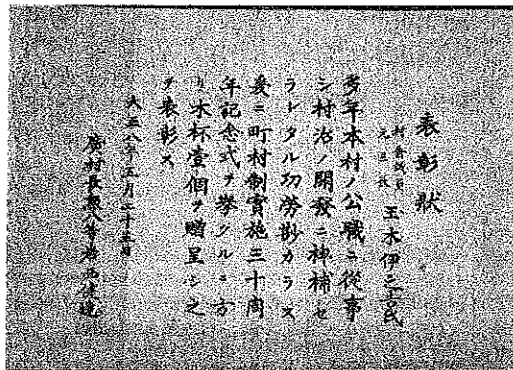 表彰狀
村會議員
元區長
玉木伊之吉氏
多年本村ノ公職ニ從事
シ村治ノ開發ニ裨補セ
ラレタル功勞尠カラス
爰ニ町村制實施三十周
年記念式ヲ擧クルニ方
リ木杯壹個ヲ贈呈シ之
ヲ表彰ス
大正八年五月二十五日
村長勳八等